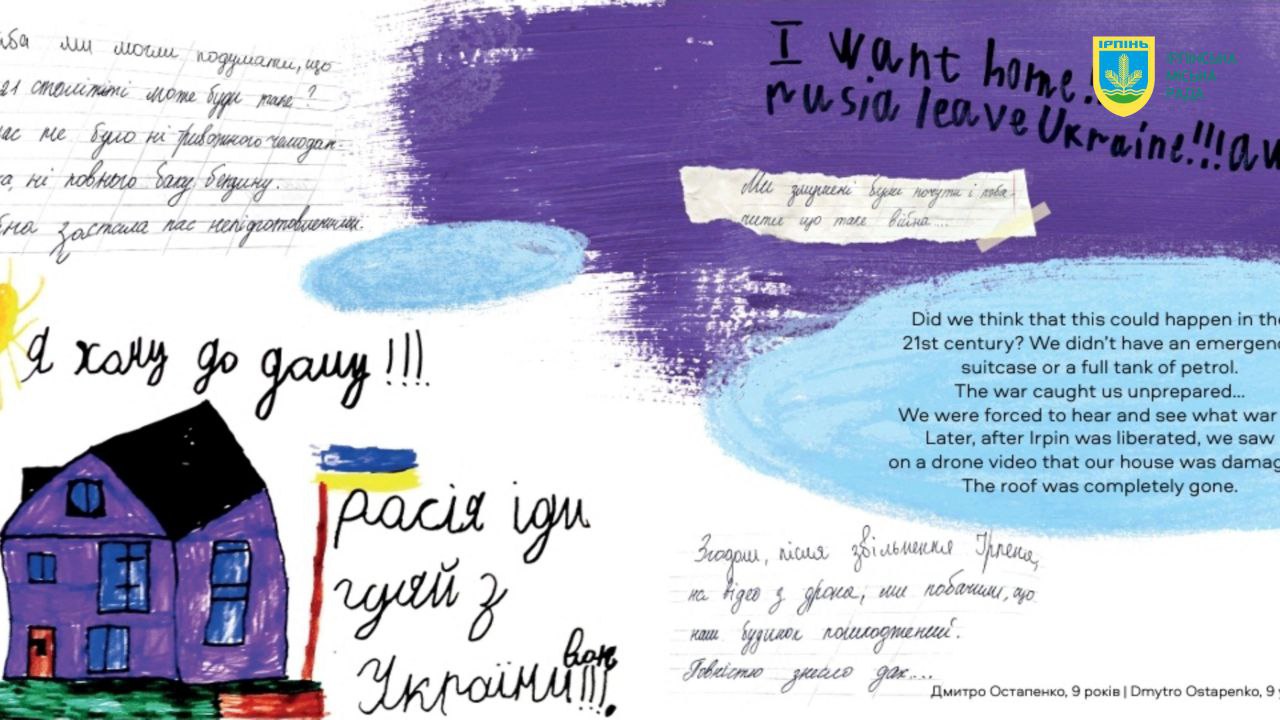 ми могли подумати, що
21 столітті може бути таке?
не було ні тривожного чемодан-
ні повного баку бензину.
застала нас непідготовленими.
Я хочу до дому!!!
расія іди
з
України!!!
I want home!!
rusia leave Ukraine!!!
ІРПІНЬ
ІРПІНСЬКА
МІСЬКА
РАДА
Ми змушені були почути і поба-
чити що таке війна...
Did we think that this could happen in the
21st century? We didn't have an emergenc
suitcase or a full tank of petrol.
The war caught us unprepared...
We were forced to hear and see what war
Later, after Irpin was liberated, we saw
on a drone video that our house was damag
The roof was completely gone.
Згодом, після звільнення Ірпеня,
на відео з дрона, ми побачили, що
наш будинок пошкоджений.
Повністю знесло дах...
Дмитро Остапенко, 9 років | Dmytro Ostapenko, 9 y